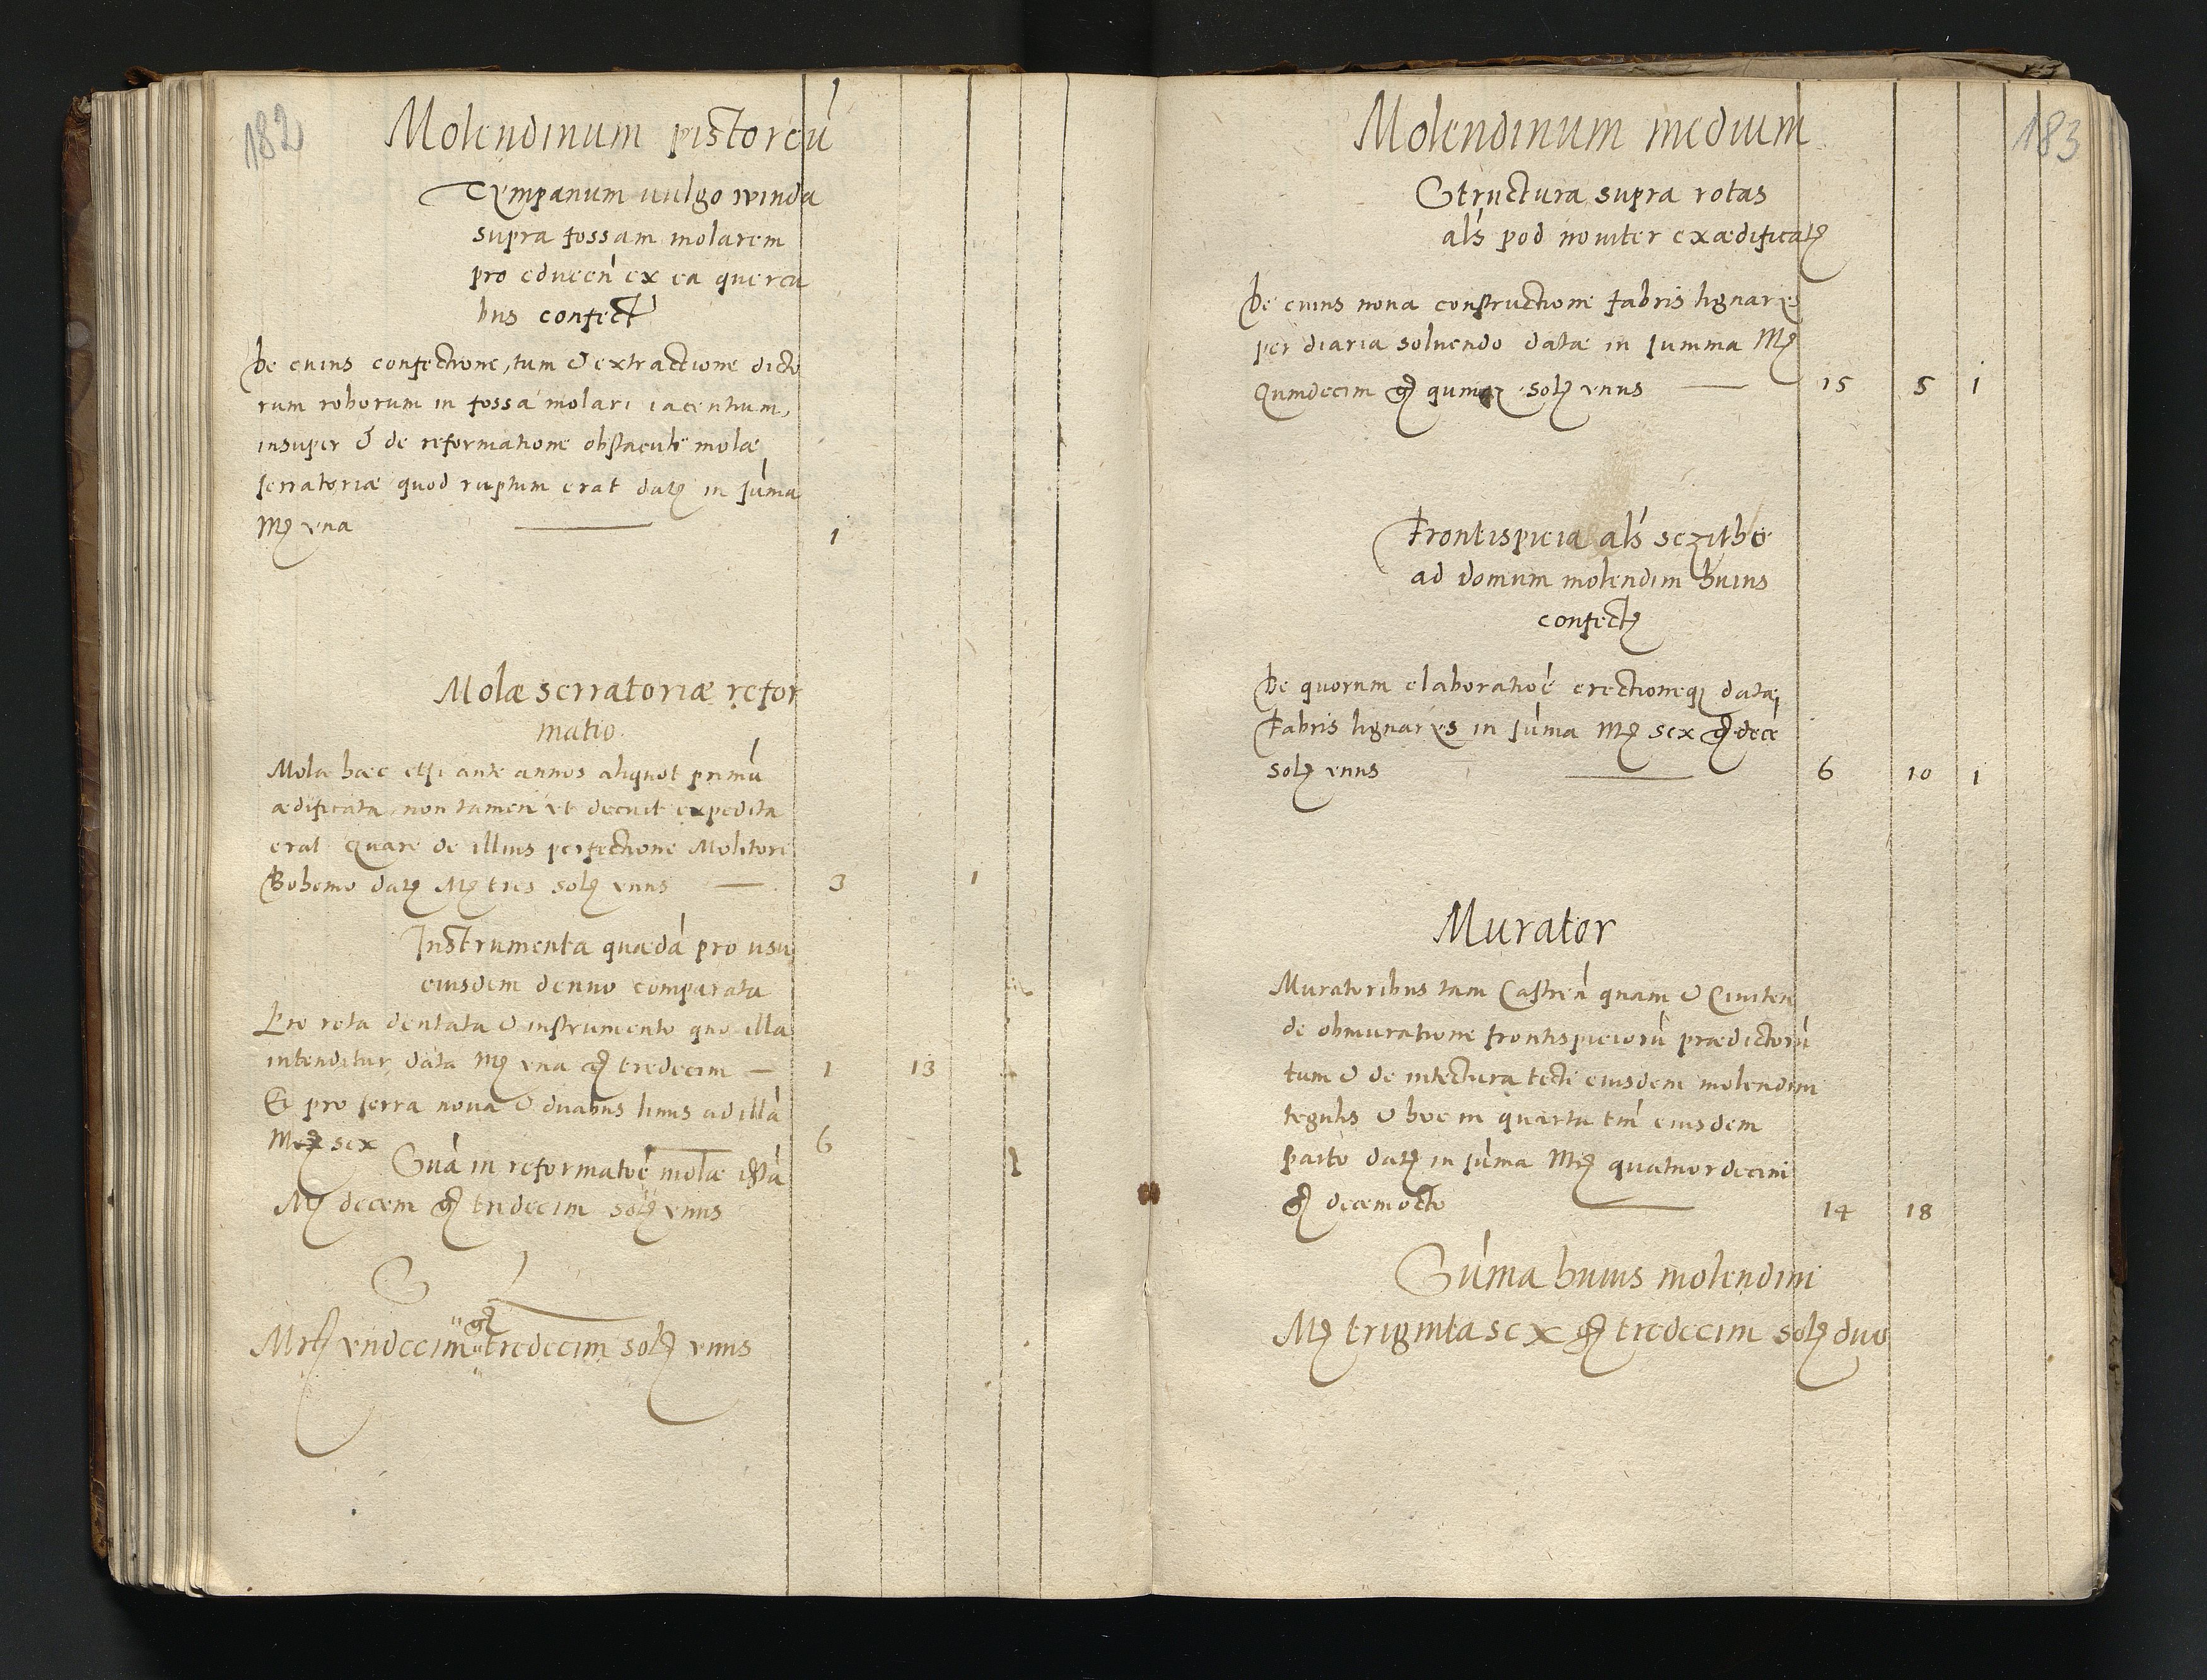 182
Molendinum pistoreū
Tympanum uulgo winda
supra fossam molarem
pro educen̄ ex ea quercu
bus confect̄
De cuius confectione, tum & extractione dicto
rum roborum in fossa molari iacentium,
insuper & de reformatione obstaculi molæ
serratoriæ quod ruptum erat datȩ in sum̄a
Mȩ vna — 1
Molæ serratoriæ refor
matio
Mola hæc etsi ante annos aliquot primū
ædificata, non tamen vt decuit expedita
erat quare de illius perfectione Molitori
Bohemo datȩ Mȩ tres solȩ vnus — 3 1
Instrumenta quædā pro usu
eiusdem denuo comparata
Pro rota dentata & instrumento quo illa
intenditur, data Mȩ vna gȩ tredecim — 1 13
Et pro serra noua & duabus limis ad illā
Mȩ sex — 6
Sūā in reformatōe molæ istā
Mȩ decem gȩ tredecim solȩ vnus
S L
gȩ
Mrȩ vndecim tredecim solȩ vnus
183
Molendinum medium
Structura supra rotas
als pod nouiter exædificatȩ
De cuius noua constructione fabris lignarys
per diaria soluendo datæ in summa Mȩ
Quindecim gȩ quinqȝ solȩ vnus — 15 5 1
Frontispicia als sczithÿ
ad domum molendini huius
confectȩ
De quorum elaboratiōe erectioneqȝ datæ
Fabris lignarys in sum̄a Mȩ sex gȩ decē
solȩ vnus — 6 10 1
Murator
Muratoribus tam Castren̄ quam & Ciuilen
de obmuratione frontispiciorū prædictorū
tum & de intectura tecti eiusdem molendini
tegulis & hoc in quarta tm̄ eiusdem
parte datȩ in sum̄a Mȩ quatuordecim
gȩ decemocto — 14 18
Sum̄a huius molendini
Mȩ triginta sex gȩ tredecim solȩ duo